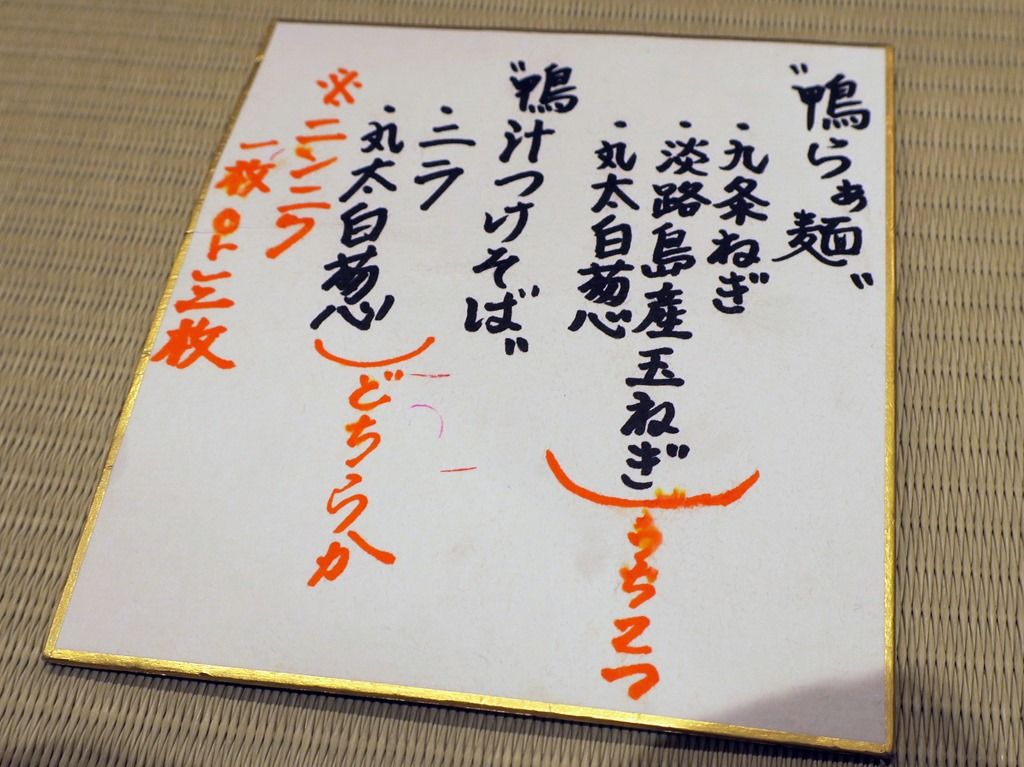 〝鴨らぁ麺〟
・九条ねぎ
・淡路島産玉ねぎ
・丸太白葱
うち2つ
〝鴨汁つけそば〟
・ニラ
・丸太白葱
どちらか
※ニンニク
一枚or三枚